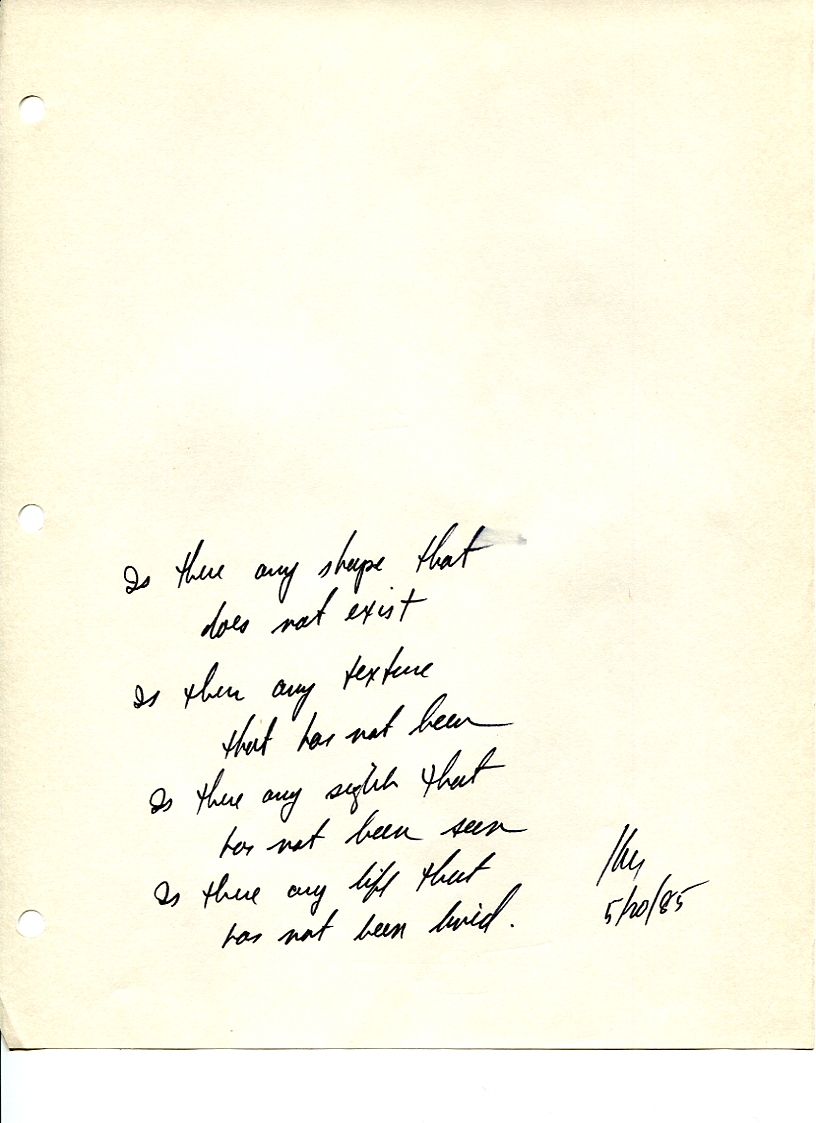 Is there any shape that
does not exist
Is there any texture
that has not been
Is there any sight that
has not been seen
Is there any life that
has not been lived.
5/20/85